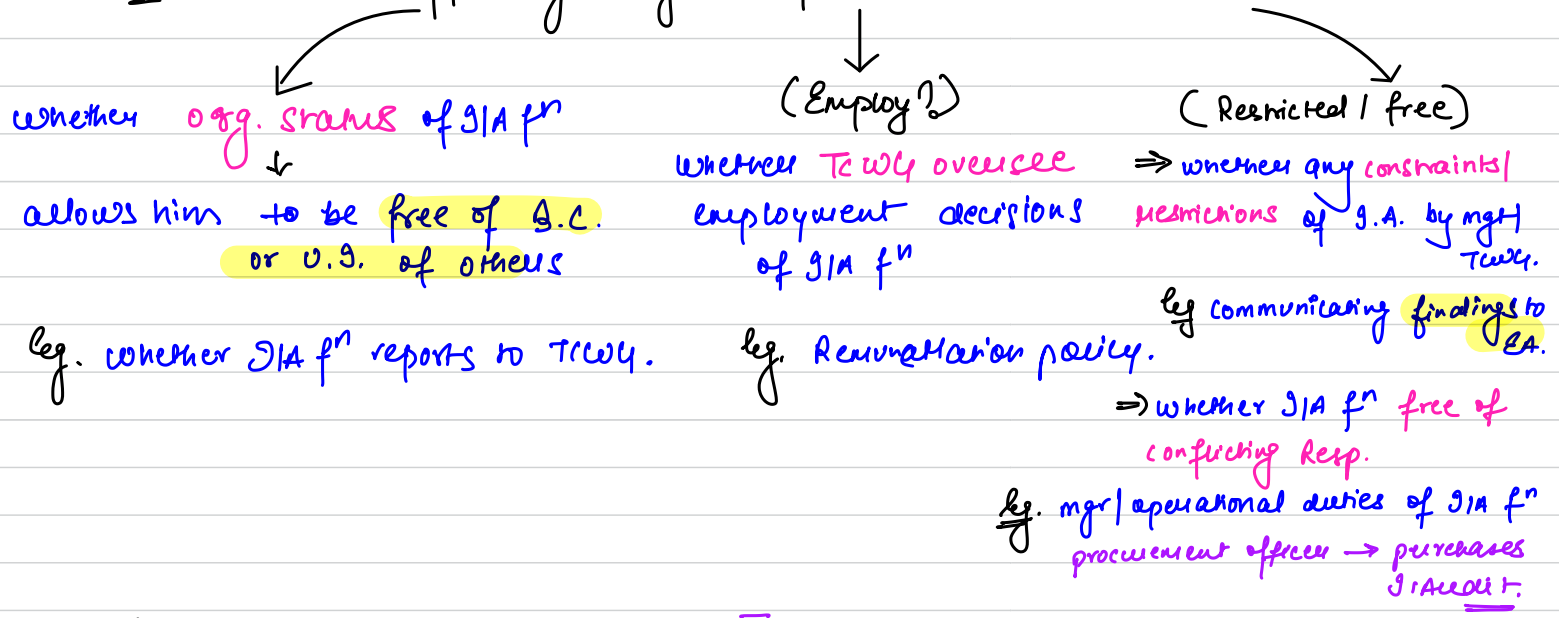 whether org. status of I/A fⁿ
↓
allows him to be free of B.C.
or U.I. of others
eg. whether I/A fⁿ reports to TCWG.
(Employ?)
whether TCWG oversee
employment decisions
of I/A fⁿ
eg. Remunaration policy.
(Restricted / free)
⇒ whether any constraints/
restrictions of I.A. by mgt/
TCWG.
eg communicating findings to
EA.
⇒ whether I/A fⁿ free of
conflicting Resp.
eg. mgr/operational duties of I/A fⁿ
procurement officer → purchases
I/Audit.